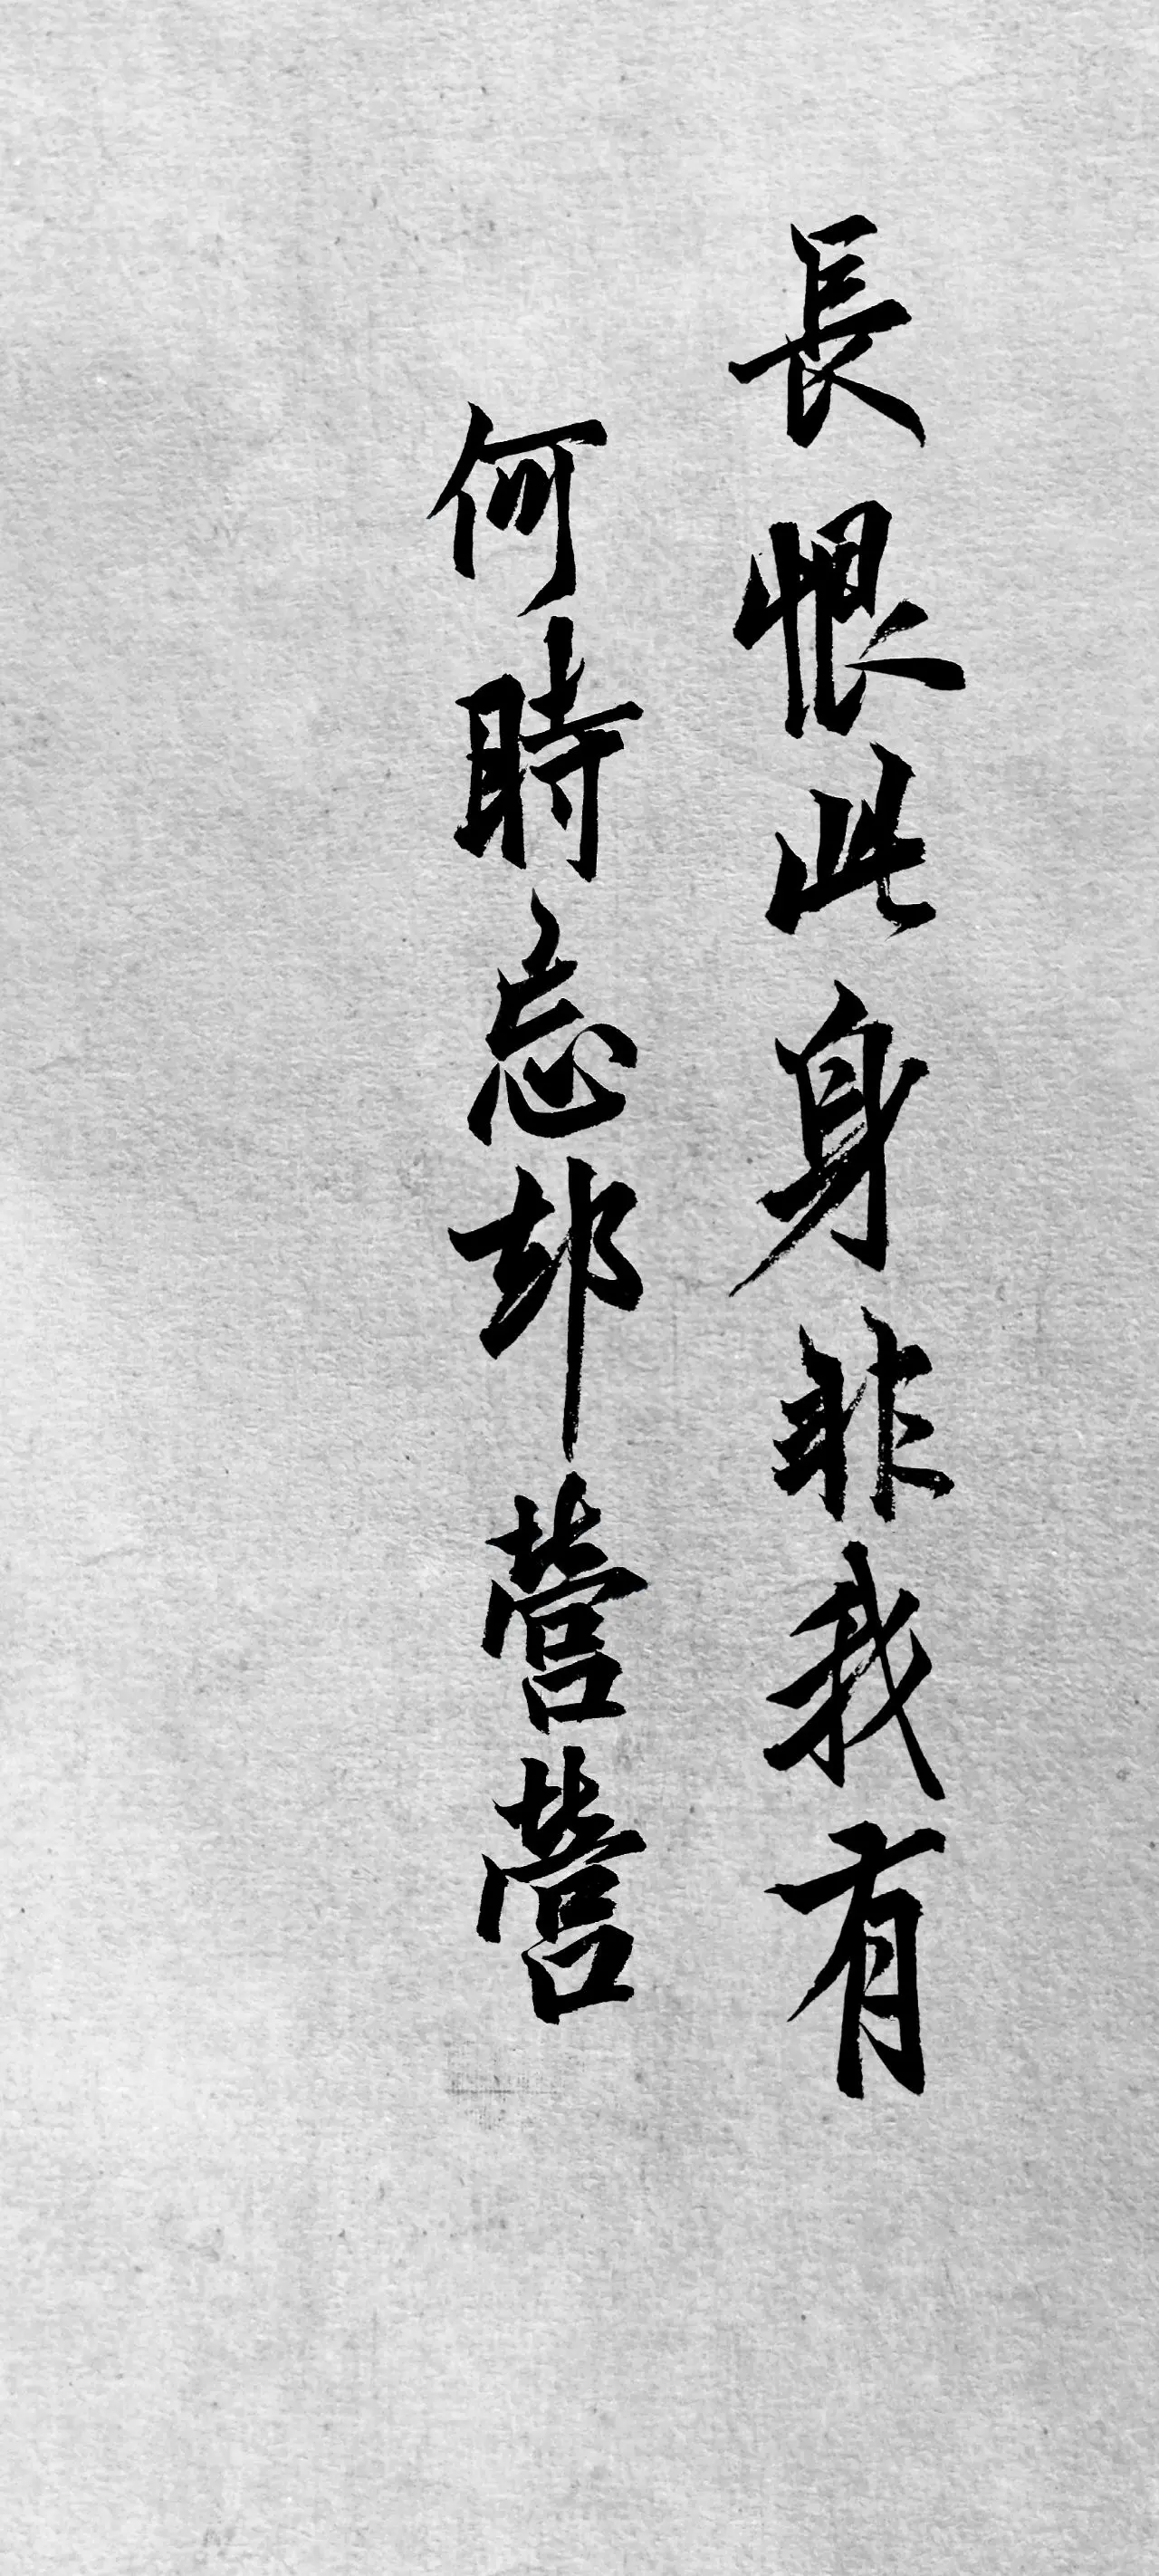 長恨此身非我有
何時忘却营营